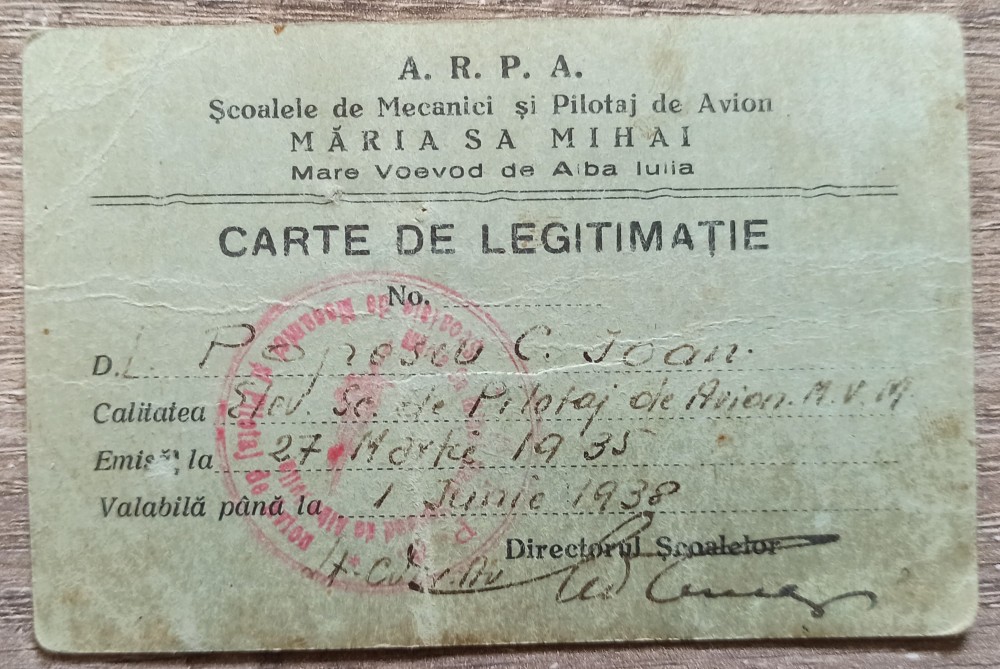 A. R. P. A.
Școalele de Mecanici și Pilotaj de Avion
MĂRIA SA MIHAI
Mare Voevod de Alba Iulia
CARTE DE LEGITIMAȚIE
No.
D.L. Popescu C. Ioan.
Calitatea Elev. Sc. de Pilotaj de Avion. M. V. M.
Emisă la 27 Martie 1935
Valabilă până la 1 Junie 1938
Directorul Școalelor